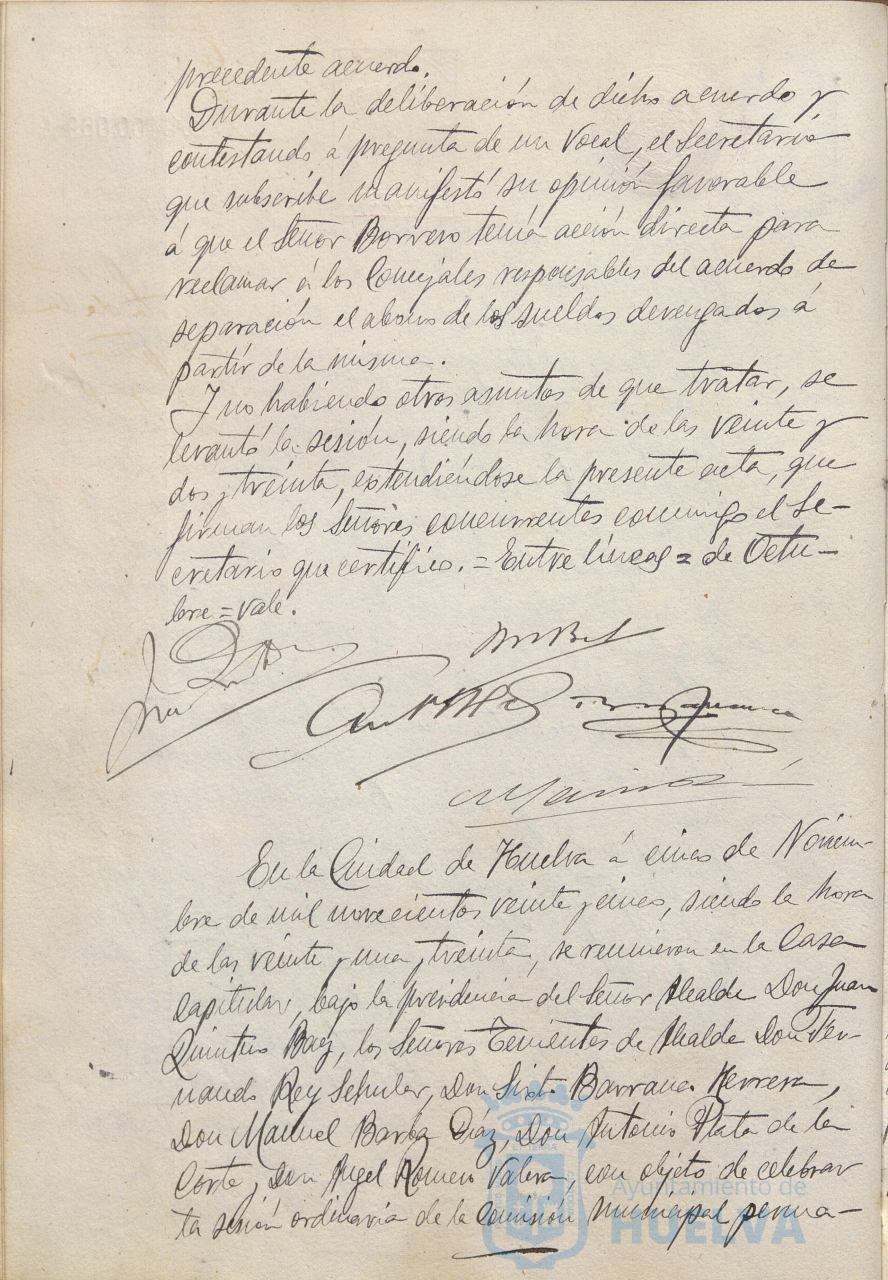 precedente acuerdo.
Durante la deliberación de dicho acuerdo y
contestando á pregunta de un Vocal, el Secretario
que subscribe manifestó su opinión favorable
á que el Señor Borrero tenía acción directa para
reclamar á los Concejales responsables del acuerdo de
separación el abono de los sueldos devengados á
partir de la misma.
Y no habiendo otros asuntos de que tratar, se
levantó la sesión, siendo la hora de las veinte y
dos y treinta, extendiéndose la presente acta, que
firman los Señores concurrentes conmigo el Se-
cretario que certifico. = Entre líneas = de Octu-
bre = vale.
En la Ciudad de Huelva á cinco de Noviem-
bre de mil novecientos veinte y cinco, siendo la hora
de las veinte y una y treinta, se reunieron en la Casa
Capitular, bajo la presidencia del Señor Alcalde Don Juan
Quintero Baez, los Señores Tenientes de Alcalde Don Fer-
nando Rey Don Sixto Barranco Herrera,
Don Manuel Barba Díaz, Don Antonio Plata de la
Corte, Don Angel Romero Valera, con objeto de celebrar
la sesión ordinaria de la Comisión Municipal perma-
Ayuntamiento de
HUELVA